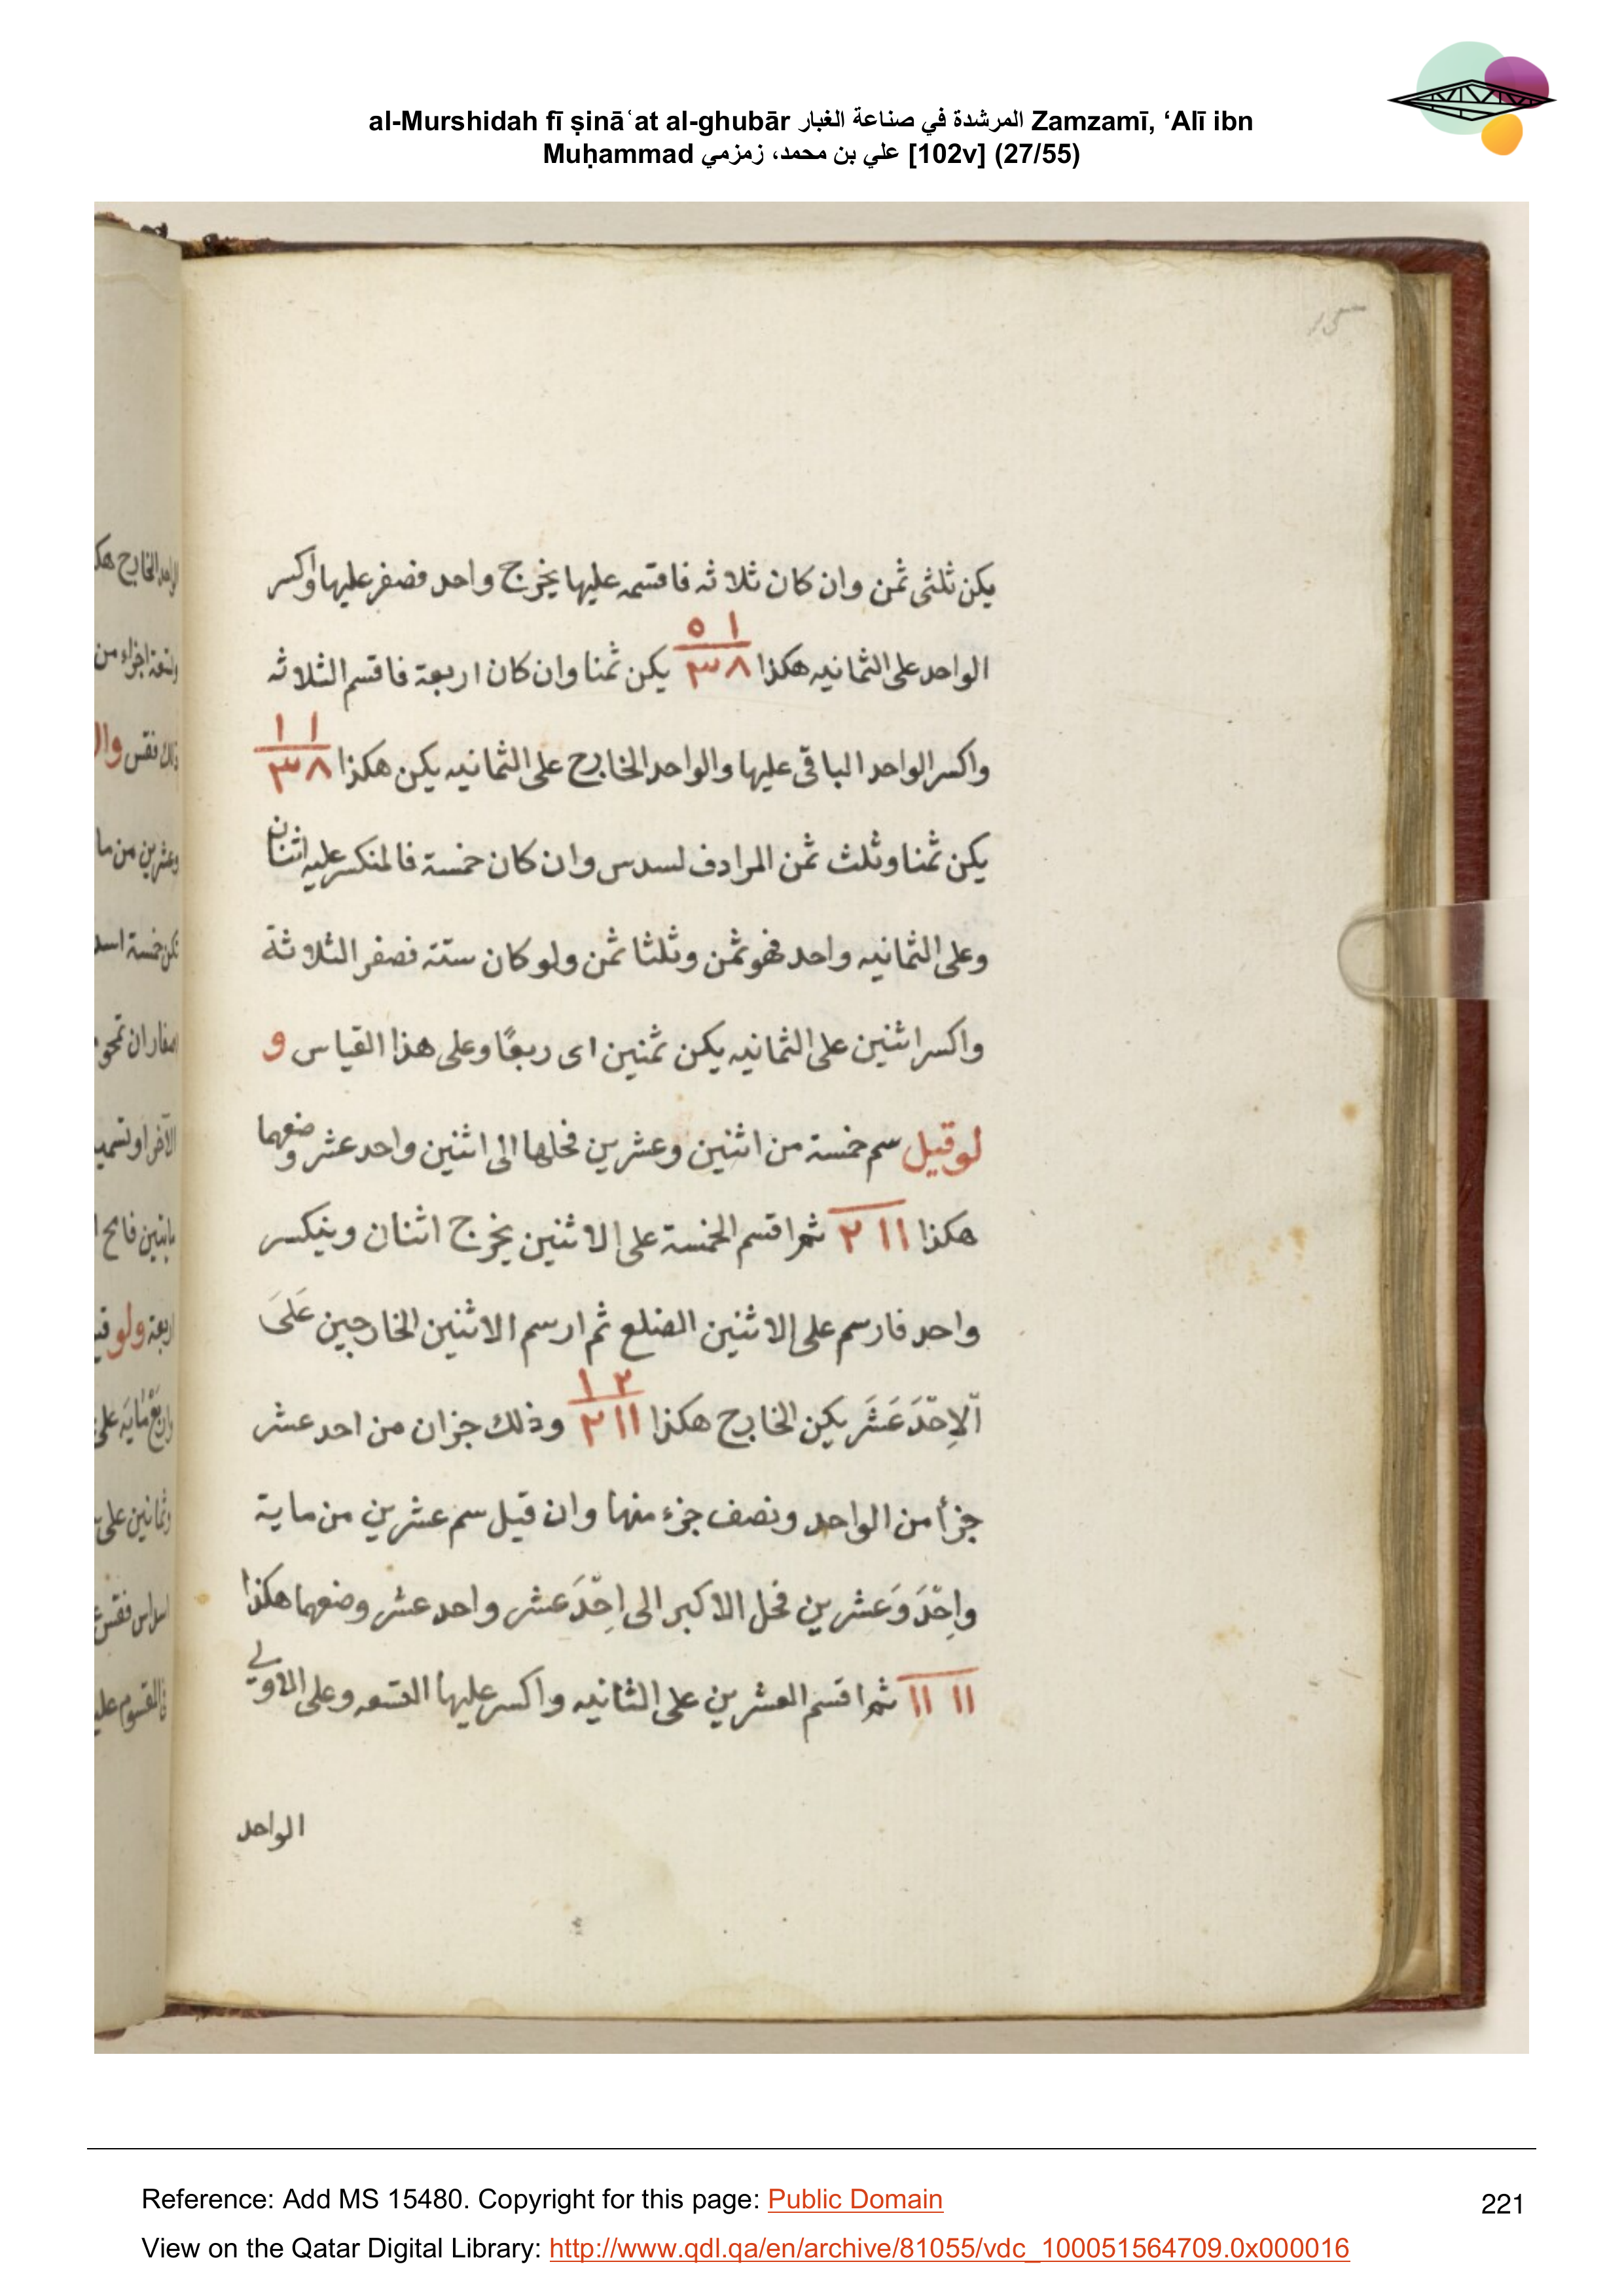 al-Murshidah fī ṣināʿat al-ghubār المرشدة في صناعة الغبار Zamzamī, ‘Alī ibn
Muḥammad علي بن محمد، زمزمي [102v] (27/55)
15
يكن ثلثى ثمن وان كان ثلاثه فاقسمه عليها يخرج واحد فصفر عليها واكسر
الواحد على الثمانيه هكذا ١ ٥ / ٨ ٣ يكن ثمنا وان كان اربعة فاقسم الثلاثه
واكسر الواحد الباقى عليها والواحد الخارج على الثمانيه يكن هكذا ١ ١ / ٨ ٣
يكن ثمنا وثلث ثمن المرادف لسدس وان كان خمسة فالمنكسر عليه اثنان
وعلى الثمانيه واحد فهو ثمن وثلثا ثمن ولو كان ستة فصفر الثلاثة
واكسر اثنين على الثمانيه يكن ثمنين اى ربعًا وعلى هذا القياس و
لو قيل سم خمسة من اثنين وعشرين فحلها الى اثنين واحد عشر وضعهما
هكذا ١١ ٢ ثم اقسم الخمسة على الاثنين يخرج اثنان وينكسر
واحد فارسم على الاثنين الضلع ثم ارسم الاثنين الخارجين عَلىَ
الاِحّدَ عَشَر يكن الخارج هكذا ٢ ١ / ١١ ٢ وذلك جزان من احد عشر
جزأ من الواحد ونصف جزء منها وان قيل سم عشرين من ماية
واِحّدَ وَعشرين فحل الاكبر الى اِحّدَ عشر واحد عشر وضعهما هكذا
١١ ١١ ثم اقسم العشرين على الثانيه واكسر عليها التسعه وعلى الاولى
الواحد
Reference: Add MS 15480. Copyright for this page: Public Domain
221
View on the Qatar Digital Library: http://www.qdl.qa/en/archive/81055/vdc_100051564709.0x000016